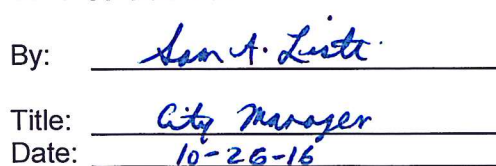 By: Sam A. Listi
Title: City Manager
Date: 10-26-16